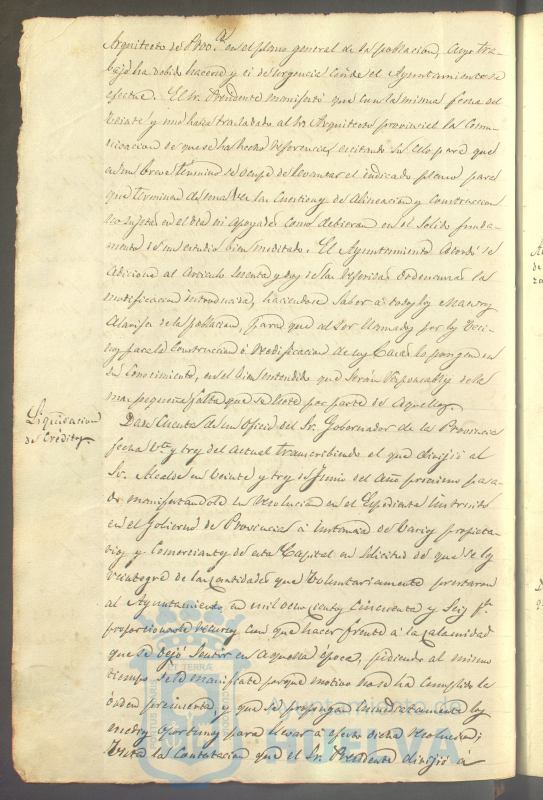 Arquitecto de Prov.ª en el plano general de la poblacion, cuyo tra-
bajo ha debido hacerse y es de urgencia como de el Ayuntamiento se
efectue. El Sr. Presidente manifestó que con la misma fecha del
veinte y uno habia trasladado al Sr. Arquitecto provincial la Comu-
nicacion de que se ha hecho referencia, escitando su celo para que
en un breve término se ocupe de levantar el indicado plano para
que terminen de una vez las cuestiones de alineacion y construccion
no sujetas en el dia ni apoyadas como debieran en el solido funda-
mento de un estudio bien meditado. El Ayuntamiento acordó se
adicione al articulo sesenta y dos de las referidas Ordenanzas la
modificacion introducida, haciendose saber á todos los Maestros
Alarifes de la poblacion, para que al ser llamados por los veci-
nos para la construccion ó reedificacion de sus Casas lo pongan en
su conocimiento, en el bien entendido que serán responsables de la
mas pequeña falta que se note por parte de aquellos.
Liquidacion
de Creditos.
Dase cuenta de un oficio del Sr. Gobernador de la Provincia
fecha vte. y tres del actual transcribiendo el que dirigió al
Sr. Alcalde en veinte y tres de Junio del año procsimo pasa-
do manifestandole la resolucion en el Espediente instruido
en el Gobierno de Provincia á instancia de varios propieta-
rios y Comerciantes de esta Capital en solicitud de que se les
reintegre de las cantidades que voluntariamente prestaron
al Ayuntamiento en mil ocho cientos cincuenta y seis p.ª
proporcionarle recursos con que hacer frente á la calamidad
que se dejó sentir en aquella epoca, pidiendo al mismo
tiempo se le manifieste porque motivo no se ha cumplido la
órden preinserta, y que se propongan inmediatamente los
medios oportunos para llevar á efecto dicha resolucion;
Vista la contestacion que el Sr. Presidente dirigió á